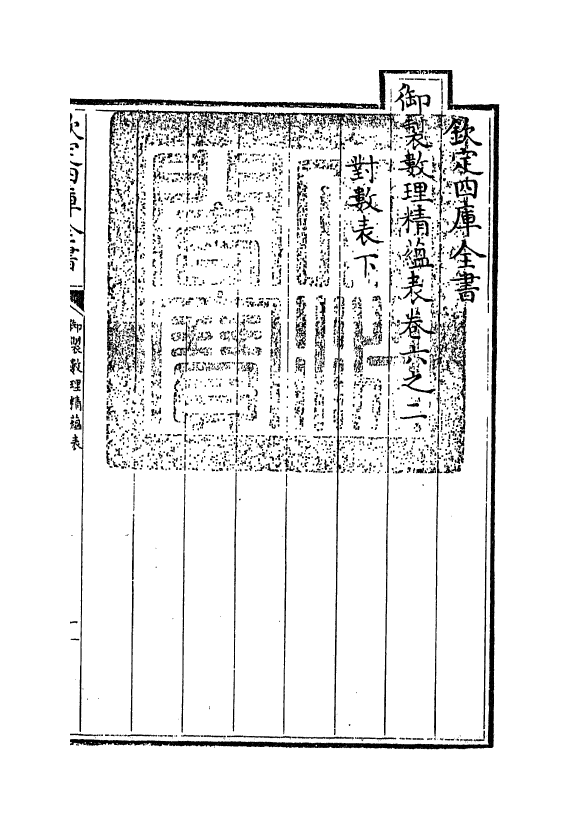 欽定四庫全書
御製數理精蘊表卷六之二
對數表下
欽定四庫全書
御製數理精蘊表